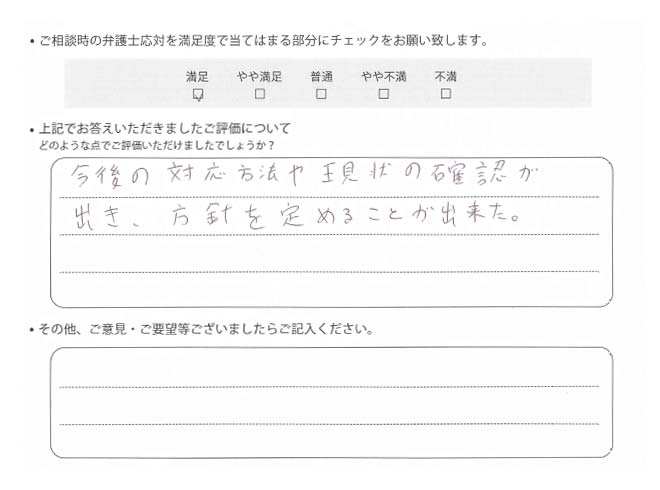 ・ご相談時の弁護士応対を満足度で当てはまる部分にチェックをお願い致します。
満足 やや満足 普通 やや不満 不満
☑ □ □ □ □
・上記でお答えいただきましたご評価について
どのような点でご評価いただけましたでしょうか？
今後の対応方法や現状の確認が
出き、方針を定めることが出来た。
・その他、ご意見・ご要望等ございましたらご記入ください。